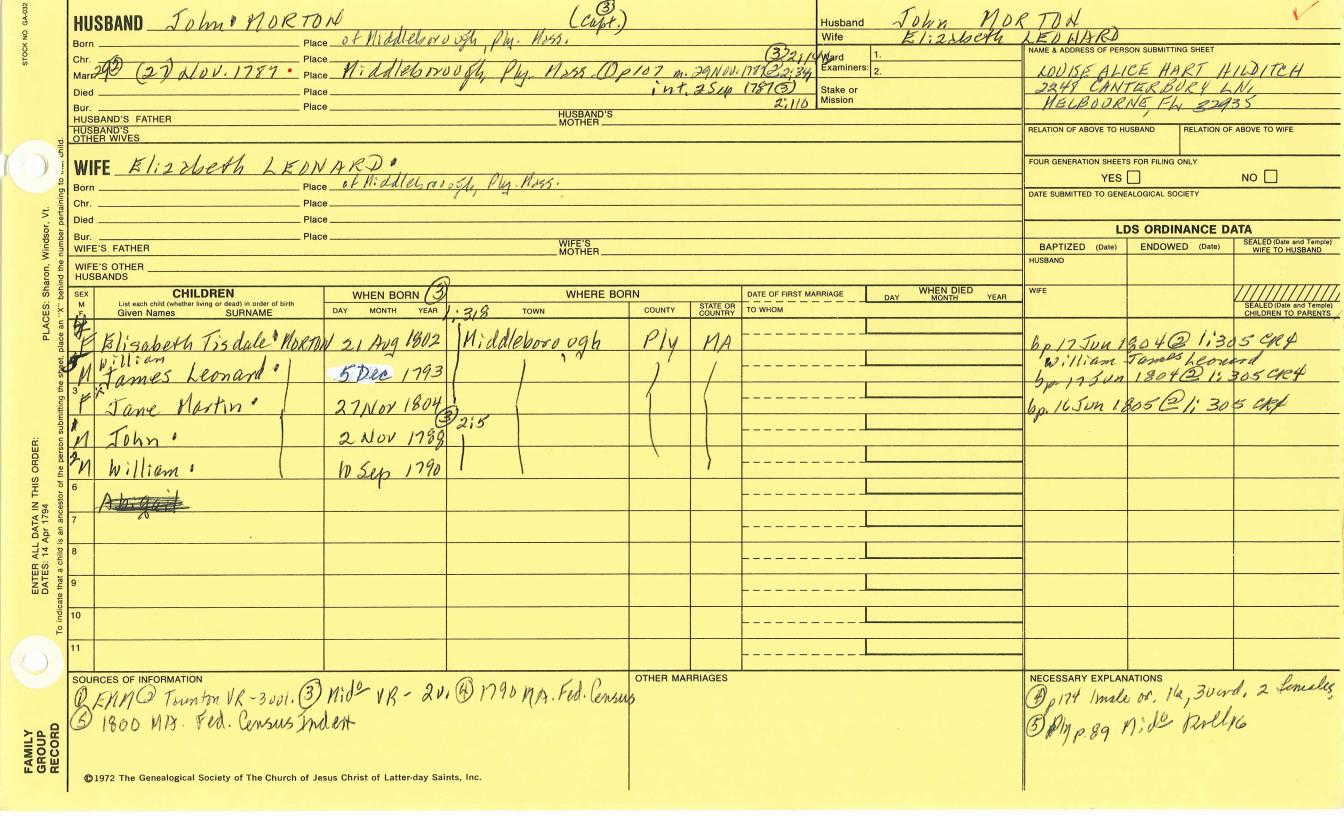 STOCK NO. GA-032
HUSBAND John MORTON (Capt.) ③
Born Place of Middleborough, Ply. Mass.
Chr. Place
Marr. 29② (27) Nov. 1787 Place Middleborough, Ply. Mass. ① p107 m. 29 Nov. 1787 ② 2:34
int. 2 Sep 1787 ③
2:110
Died Place
Bur. Place
HUSBAND'S FATHER HUSBAND'S MOTHER
HUSBAND'S OTHER WIVES
Husband John MORTON
Wife Elizabeth LEONARD
Ward 1.
Examiners: 2.
Stake or Mission
NAME & ADDRESS OF PERSON SUBMITTING SHEET
LOUISE ALICE HART HILDITCH
2248 CANTERBURY LN,
MELBOURNE, FL 32935
RELATION OF ABOVE TO HUSBAND RELATION OF ABOVE TO WIFE
FOUR GENERATION SHEETS FOR FILING ONLY
YES NO
DATE SUBMITTED TO GENEALOGICAL SOCIETY
WIFE Elizabeth LEONARD
Born Place of Middleborough, Ply. Mass.
Chr. Place
Died Place
Bur. Place
WIFE'S FATHER WIFE'S MOTHER
WIFE'S OTHER HUSBANDS
LDS ORDINANCE DATA
BAPTIZED (Date) ENDOWED (Date) SEALED (Date and Temple) WIFE TO HUSBAND
HUSBAND
WIFE
SEALED (Date and Temple) CHILDREN TO PARENTS
SEX M F CHILDREN WHEN BORN ③ WHERE BORN DATE OF FIRST MARRIAGE WHEN DIED
List each child (whether living or dead) in order of birth
Given Names SURNAME DAY MONTH YEAR 1:318 TOWN COUNTY STATE OR COUNTRY TO WHOM DAY MONTH YEAR
4 F Elisabeth Tisdale MORTON 21 Aug 1802 Middleborough Ply MA bp. 17 Jun 1804 ② 1:305 CR4
William James Leonard
M William James Leonard 5 Dec 1793 bp. 17 Jun 1804 ② 1:305 CR4
3 F Jane Martin 27 Nov 1804 bp. 16 Jun 1805 ② 1:305 CR4
1 M John 2 Nov 1788 ③ 2:5
2 M William 10 Sep 1790
6 Abigail
7
8
9
10
11
PLACES: Sharon, Windsor, Vt.
ENTER ALL DATA IN THIS ORDER:
DATES: 14 Apr 1794
To indicate that a child is an ancestor of the person submitting the sheet, place an "X" behind the number pertaining to child.
FAMILY GROUP RECORD
SOURCES OF INFORMATION
① EMM ② Taunton VR-3vol. ③ Mido VR-2v. ④ 1790 MA. Fed. Census
⑤ 1800 MA. Fed. Census Index
OTHER MARRIAGES
NECESSARY EXPLANATIONS
④ p174 1male ov. 16, 3 und, 2 females
⑤ Ply p 89 Mido Roll 16
©1972 The Genealogical Society of The Church of Jesus Christ of Latter-day Saints, Inc.